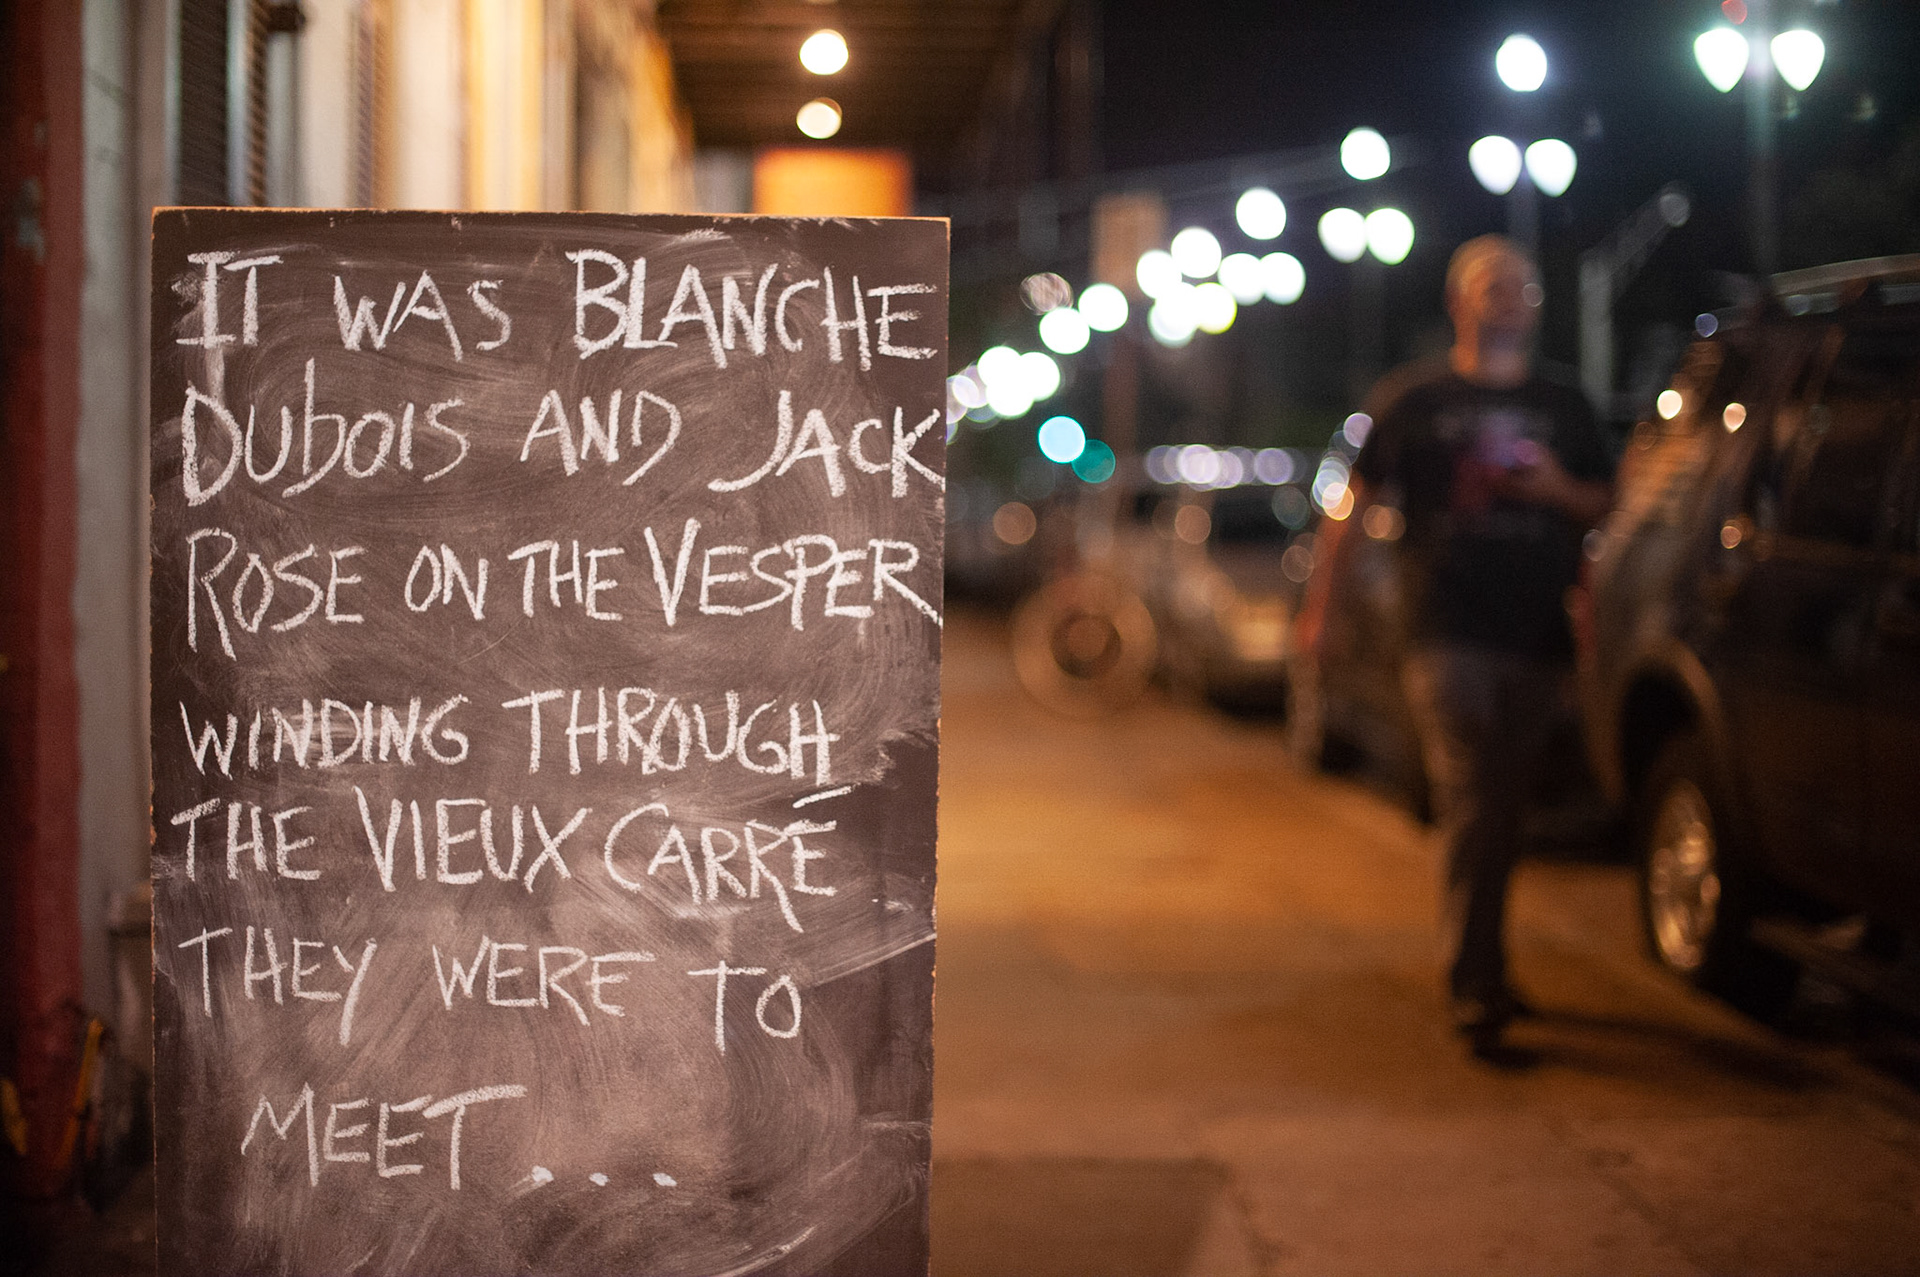 IT WAS BLANCHE
DUBOIS AND JACK
ROSE ON THE VESPER
WINDING THROUGH
THE VIEUX CARRÉ
THEY WERE TO
MEET...